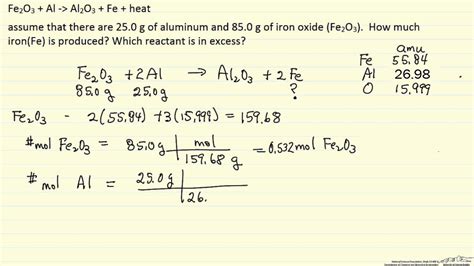 Fe2O3 + Al -> Al2O3 + Fe + heat
assume that there are 25.0 g of aluminum and 85.0 g of iron oxide (Fe2O3). How much
iron(Fe) is produced? Which reactant is in excess?
amu
Fe 55.84
Al 26.98
O 15.999
Fe2O3 + 2Al → Al2O3 + 2Fe
85.0g 25.0g ?
Fe2O3 - 2(55.84) + 3(15.999) = 159.68
# mol Fe2O3 = 85.0g | mol / 159.68 g = 0.532 mol Fe2O3
# mol Al = 25.0 g | / 26.